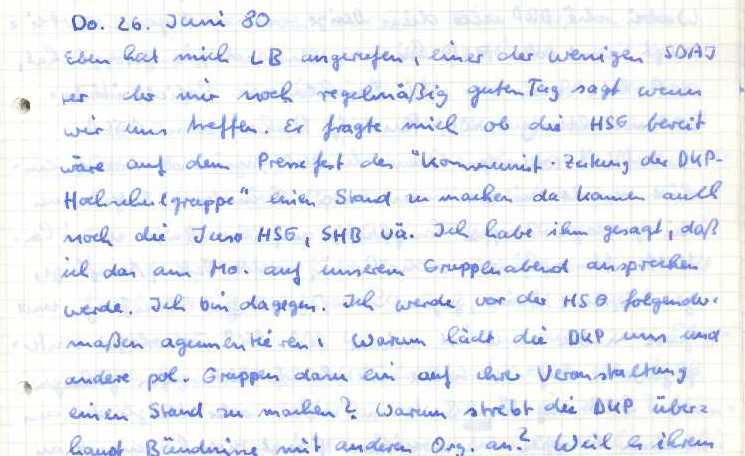 Do. 26. Juni 80
Eben hat mich LB angerufen, einer der wenigen SDAJ
er der mir noch regelmäßig guten Tag sagt wenn
wir uns treffen. Er fragte mich ob die HSG bereit
wäre auf dem Pressefest des "Kommunist. Zeitung der DKP-
Hochschulgruppe" einen Stand zu machen da kämen auch
noch die Juso HSG, SHB uä. Ich habe ihm gesagt, daß
ich das am Mo. auf unserem Gruppenabend ansprechen
werde. Ich bin dagegen. Ich werde vor der HSG folgender-
maßen agumentieren: Warum lädt die DKP uns und
andere pol. Gruppen dazu ein auf ihrer Veranstaltung
einen Stand zu machen? Warum strebt die DKP über=
haupt Bündnisse mit anderen Org. an? Weil es ihrem